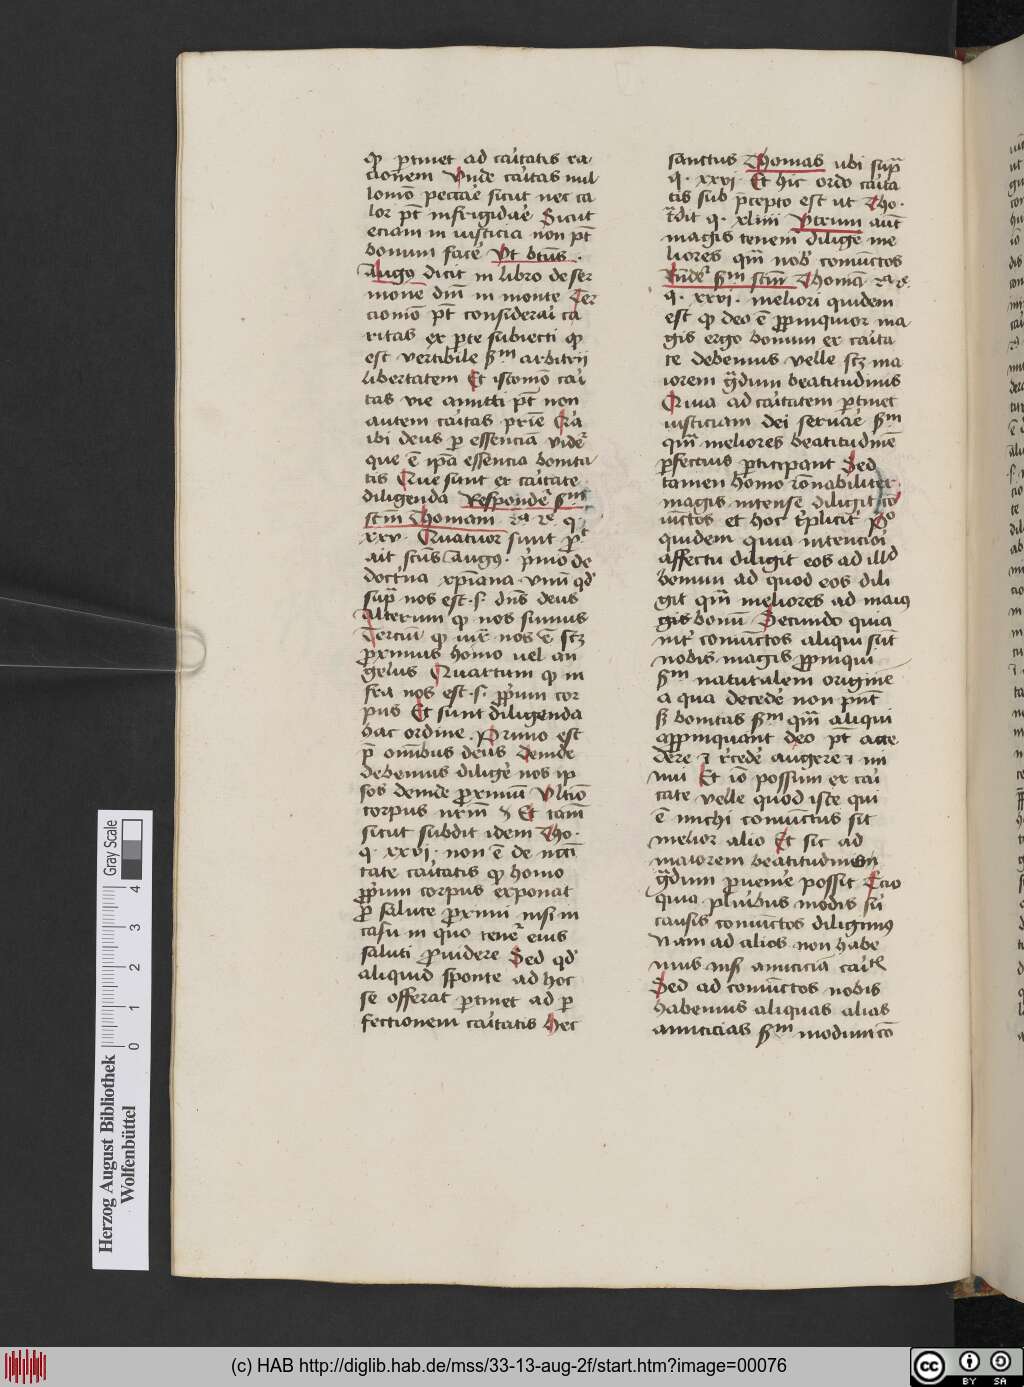 qꝫ ꝑtinet ad caritatis ra-
cionem Vnde caritas nul
lomō peccare sicut nec ca
lor pt̄ infrigidare Sicut
eciam iniusticia non pt̄
bonum face͛ Vt btūs
Augꝰ dicit in libro de ser
mone dm̄ in monte Ter
ciomō pt̄ considerari ca
ritas ex ꝑte subiecti qꝫ
est vertibile ẜm arbitrij
libertatem Et istomō cari
tas vie amitti pt̄ non
autem caritas pr̄ie Q͛
ibi deus ꝑ essenciā videt͛
que ē ipā essencia bonita-
tis Que sunt ex caritate
diligenda Respondet͛ ẜm
scm̄ Thomam ·2ᵃ 2ᵉ q̄
xxv· Quatuor sunt ꝑ
ait scūs Augꝰ· pͥmō de
doctͥna xp̄iana ·vnū qd̓
sup̄ nos est ·s· dn̄s deus
Alterum qꝫ nos sumus
Terciū qꝫ iux̄ nos ē scꝫ
proximus homo uel an
gelus Quartum qꝫ in
fra nos est ·s· ꝓpͥum cor
pus Et sunt diligenda
hac ordine. Primo est
p̄ omībus deus deinde
debemus dilige͛ nos ip
sos deinde proximū Vltiō
corpus nr̄m Et tam̄
sicut subdit idem Tho·
q· xxvi· non ē de ncc̄i
tate caritatis qꝫ homo
ꝓpͥum corpus exponat
ꝓ salute proximi nisi in
casu in quo tenet͛ eius
saluti ꝓuidere Sed qd̓
aliquid sponte ad hoc
se offerat ꝑtinet ad ꝑ
fectionem caritatis Hec
sanctus Thomas ubi sup̄
q· xxvi· Et hic ordo carita
tis sub p̄cepto est ut Tho·
tͣdit q· xliiii Vtrum aūt
magis tenem͛ dilige͛ me
liores qm̄ nob̓ coniūctos
Rn̄det͛ ẜm scm̄ Thomā 2ᵃ 2ᵉ
q· xxvi· meliori quidem
est qꝫ deo ē ꝓpinquior ma-
gis ergo bonum ex carita
te debemus velle scꝫ ma
iorem gͣdum beatitudinis
Quia ad caritatem ꝑtinet
iusticiam dei seruare ẜm
qm̄ meliores beatitudinē
ꝑfectius ꝑticipant Sed
tamen homo rōnabiliter
magis intense diligit cō
iūctos et hoc tͥpliciter Pͦ
quidem quia intenciōi
affectu diligit eos ad illd̓
bonum ad quod eos dili
git qm̄ meliores ad maiꝰ
gis bonū Secundo quia
int͛ coniūctos aliqui sūt
nobis magis ꝓpinqui
ẜm naturalem origine
a qua decede͛ non pn̄t
ꝫ bonitas ẜm qm̄ aliqui
appropinquant deo pt̄ acce-
dere ⁊ rͤcede͛ augere ⁊ mi
nui Et iō possum ex cari
tate velle quod iste qui
ē michi coniūctus sit
melior alio Et sic ad
maiorem beatitudinem
gͣdum ꝑuenire possit Tcio
quia pluribus modis sū
causis coniūctos diligimꝰ
Nam ad alios non habe
mus nisi amiciciā carit͛
Sed ad coniūctos nobis
habemus aliquas alias
amicicias ẜm modum cō
Herzog August Bibliothek
Wolfenbüttel
0 1 2 3 4 Gray Scale
(c) HAB http://diglib.hab.de/mss/33-13-aug-2f/start.htm?image=00076
cc BY SA